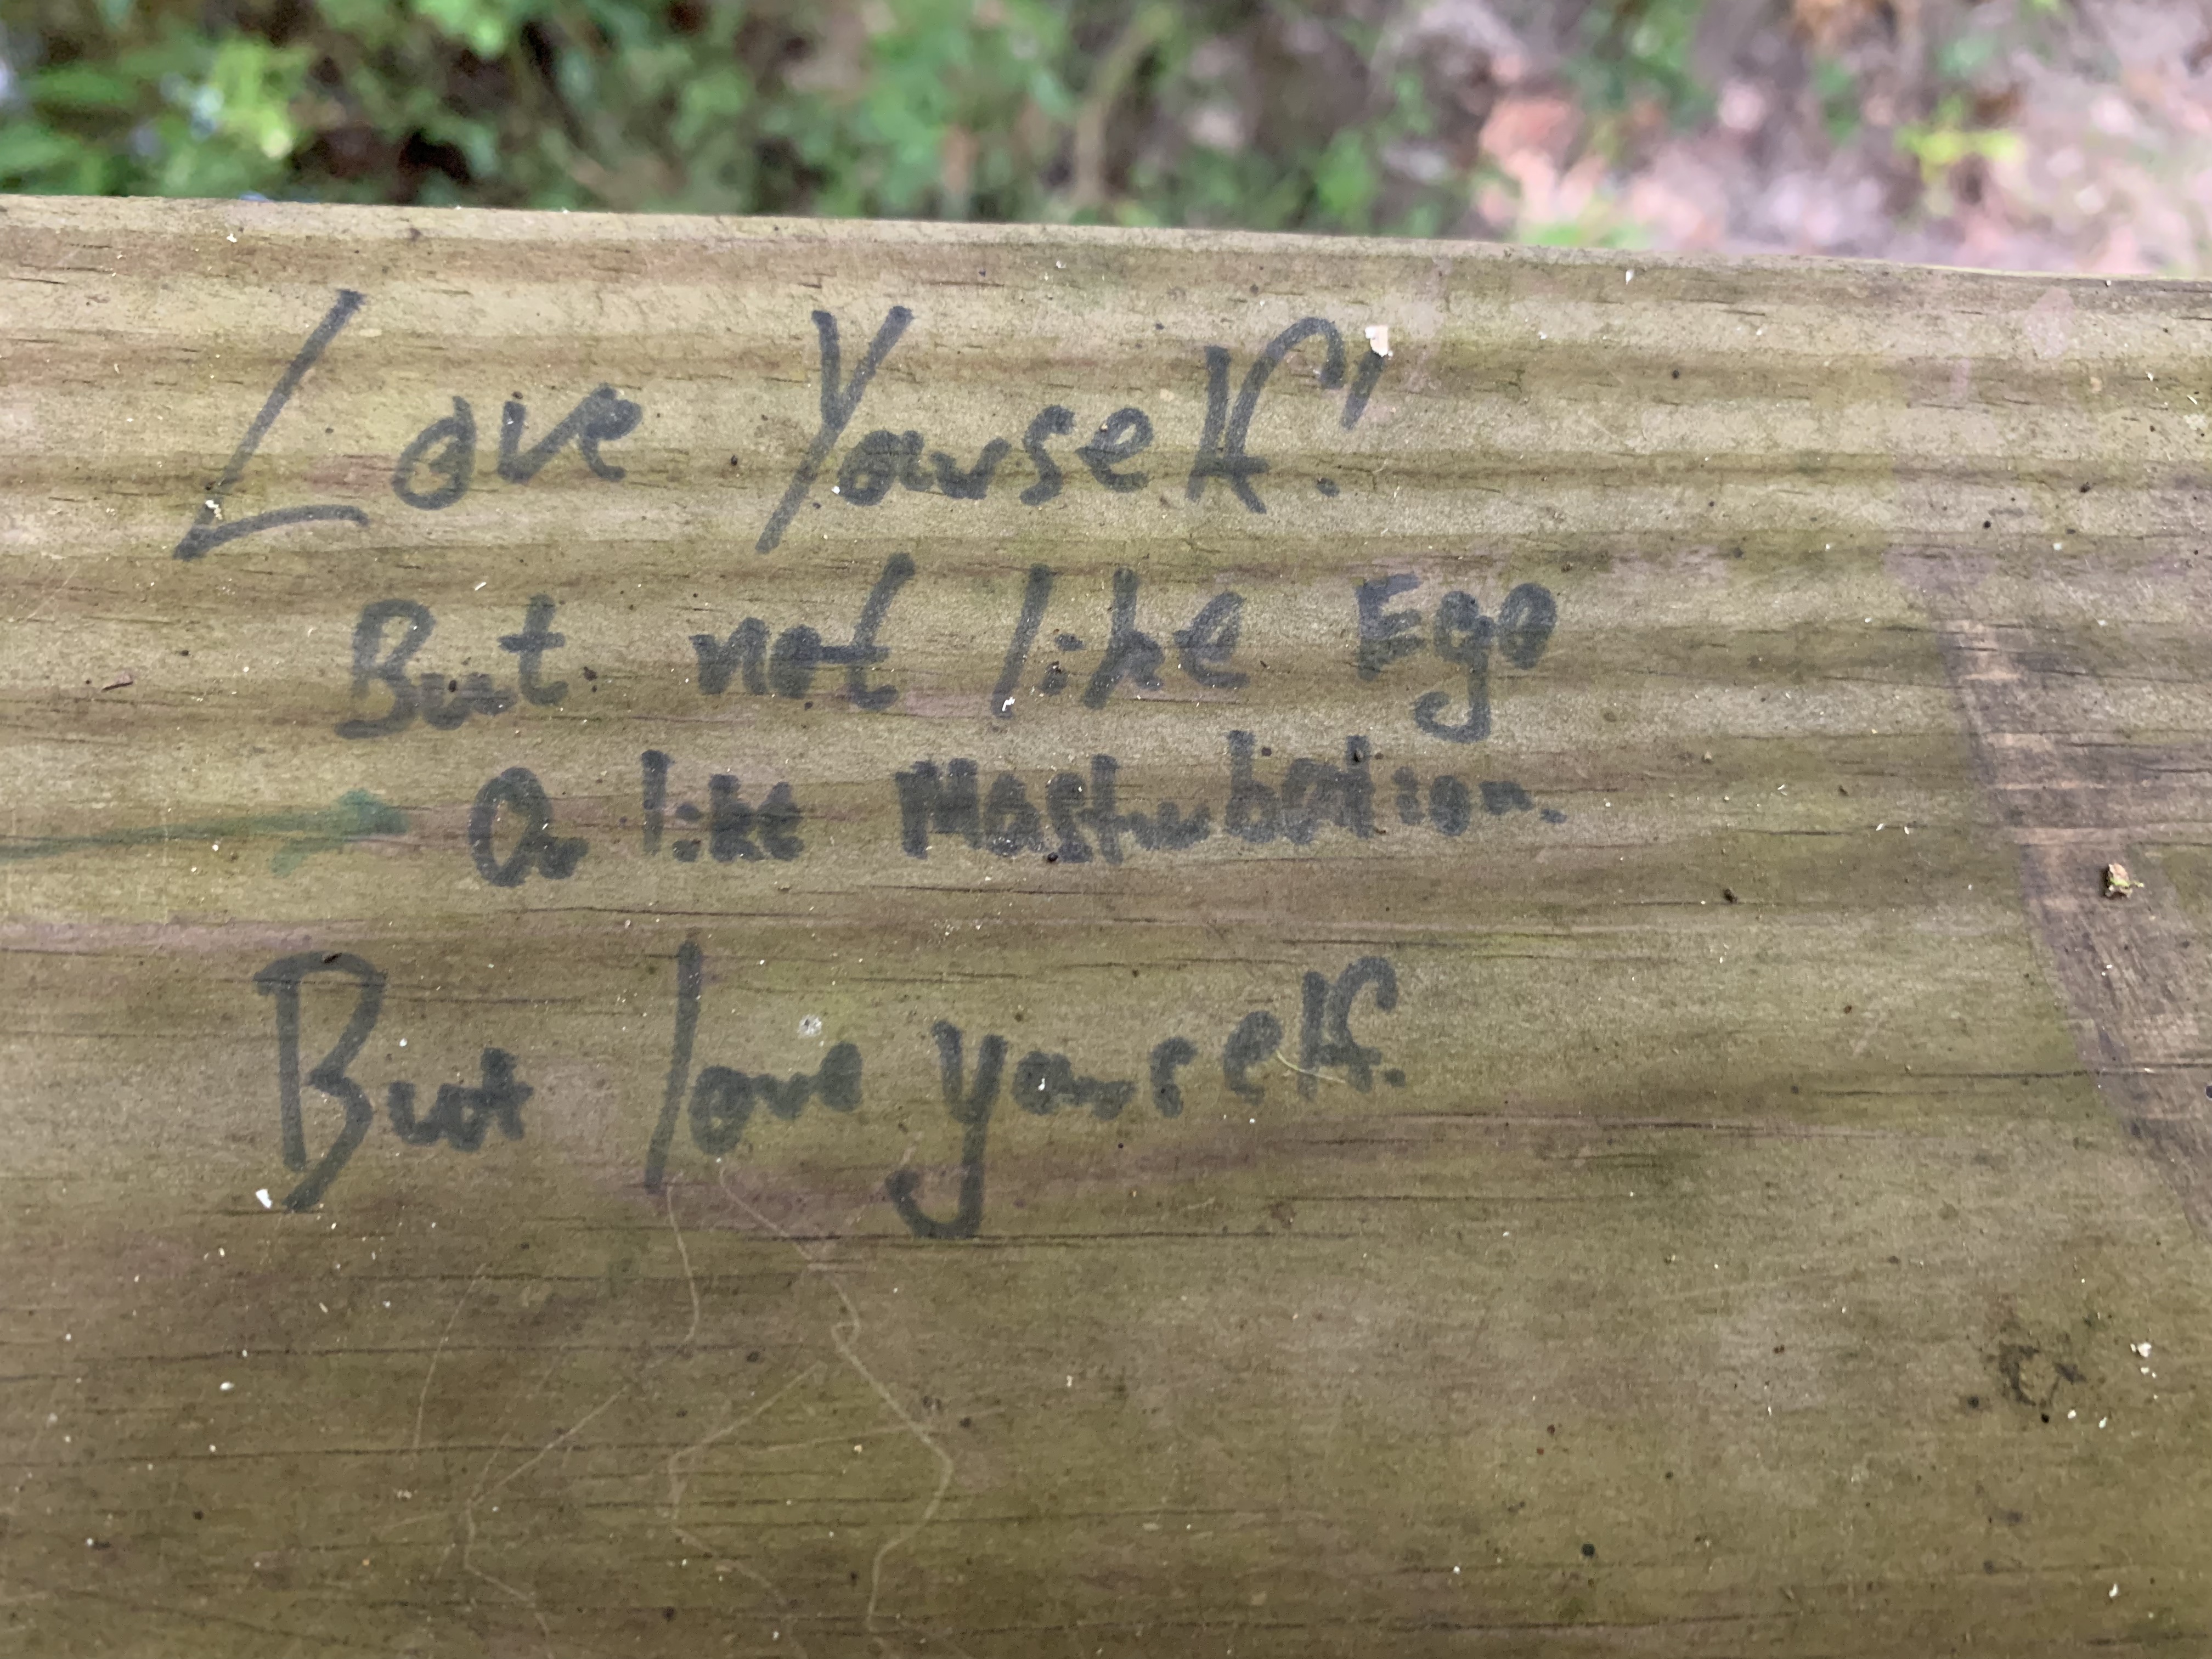 Love Yourself!
But not like Ego
Or like Masturbation.
But love yourself.